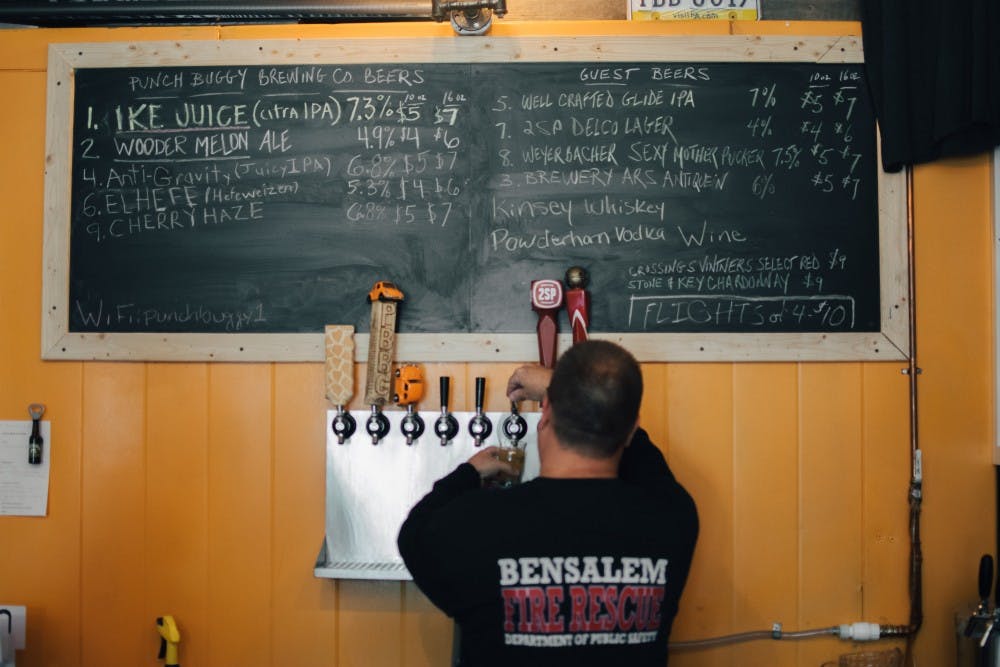 visitPA.com
PUNCH BUGGY BREWING CO. BEERS
10 oz 16 oz
1. IKE JUICE (citra IPA) 7.3% $5 $7
2 WOODER MELON ALE 4.9% $4 $6
4. Anti-Gravity (Juicy IPA) 6.8% $5 $7
6. EL HEFE (Hefeweizen) 5.3% $4 $6
9. CHERRY HAZE 6.8% $5 $7
WiFi: punchbuggy1
GUEST BEERS
10 oz 16 oz
5. WELL CRAFTED GLIDE IPA 7% $5 $7
7. 2SP DELCO LAGER 4% $4 $6
8. WEYERBACHER SEXY MOTHER PUCKER 7.5% $5 $7
3. BREWERY ARS ANTIQUEN 6% $5 $7
Kinsey Whiskey
Powderham Vodka Wine
CROSSINGS VINTNERS SELECT RED $9
STONE & KEY CHARDONNAY $9
FLIGHTS of 4 - $10
2SP
PBBC
BENSALEM
FIRE RESCUE
DEPARTMENT OF PUBLIC SAFETY